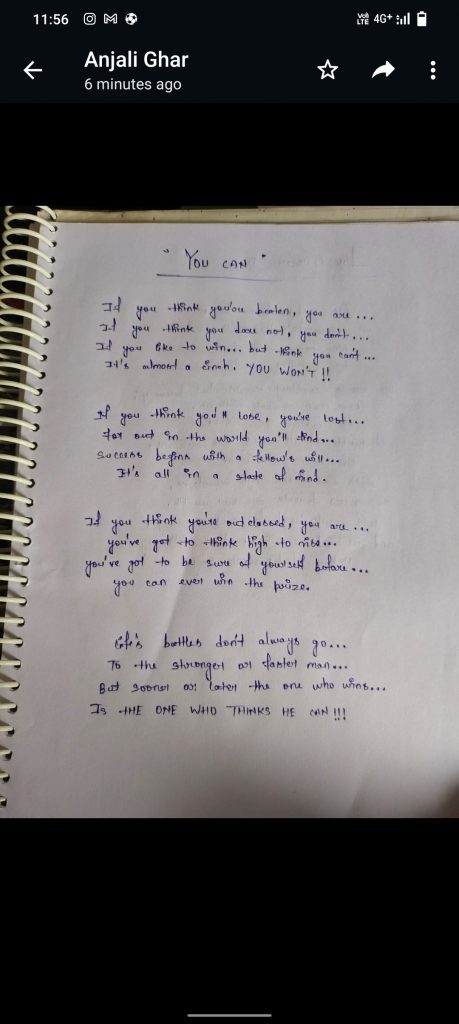 11:56
VoLTE 4G+
Anjali Ghar
6 minutes ago
" YOU CAN "
If you think you'ou beaten, you are...
If you think you dare not, you don't...
If you like to win... but think you can't...
It's almost a cinch. YOU WON'T !!
If you think you'll lose, you're lost...
for out in the world you'll find...
Success begins with a fellow's will...
It's all in a state of mind.
If you think you're outclassed, you are...
you've got to think high to rise...
you've got to be sure of yourself before...
you can ever win the prize.
Life's battles don't always go...
To the stronger or faster man...
But sooner or later the one who wins...
Is THE ONE WHO THINKS HE CAN !!!